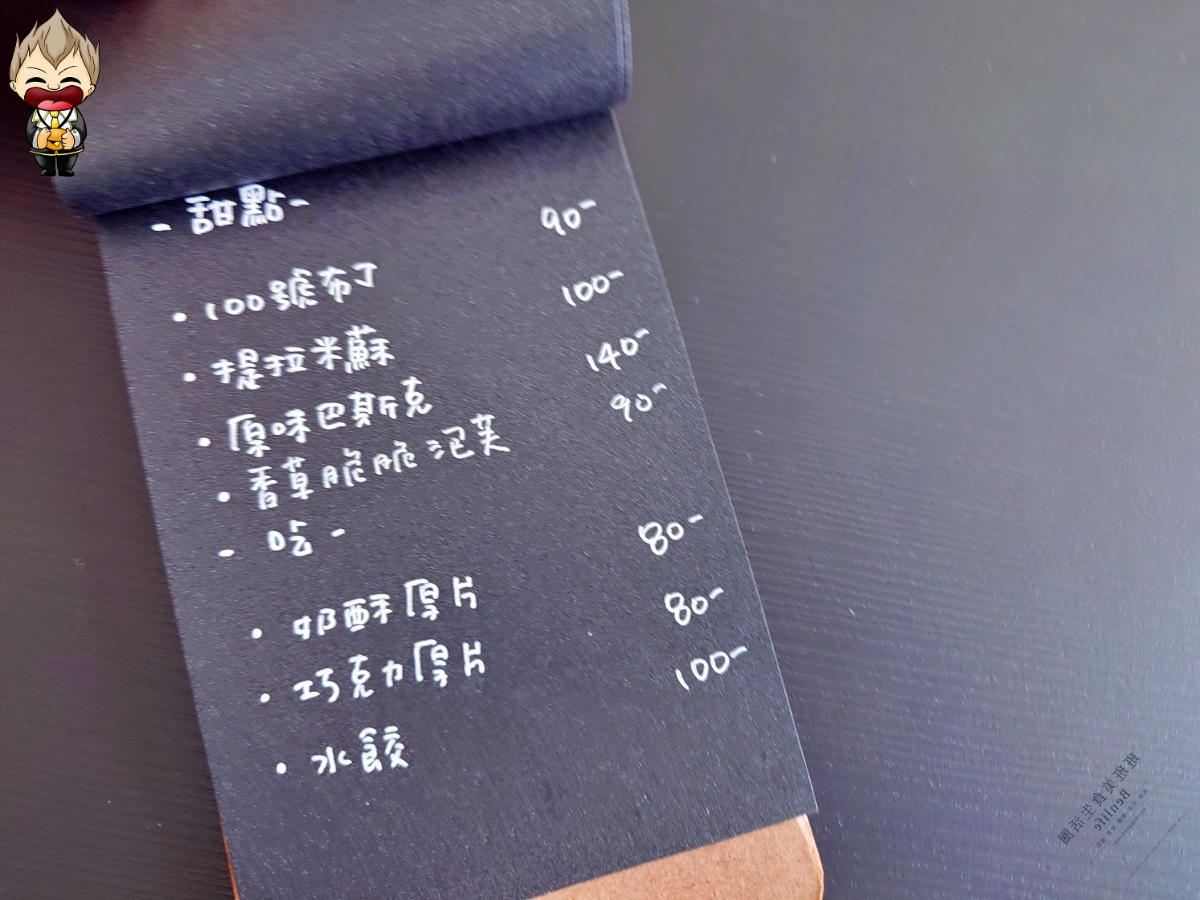 - 甜點 -
• 100號布丁 90-
• 提拉米蘇 100-
• 原味巴斯克 140-
• 香草脆脆泡芙 90-
- 吃 -
• 耶酥厚片 80-
• 巧克力厚片 80-
• 水餃 100-
班班美食主活圈
Benlife